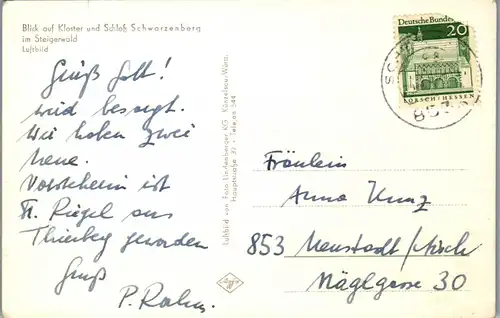 Blick auf Kloster und Schloß Schwarzenberg
im Steigerwald
Luftbild
Grüß Gott!
wird besorgt.
Wir haben zwei
neue.
Vorsteherin ist
Fr. Riegel aus
Thierberg geworden
Gruß
P. Rahm.
Luftbild von Foto Lindenberger KG Künzelsau/Württ.
Hauptstraße 37 - Telefon 344
Deutsche Bundes
20
LORSCH/HESSEN
SCH
853
Fräulein
Anna Kunz
853 Neustadt/Aisch
Näglgasse 30